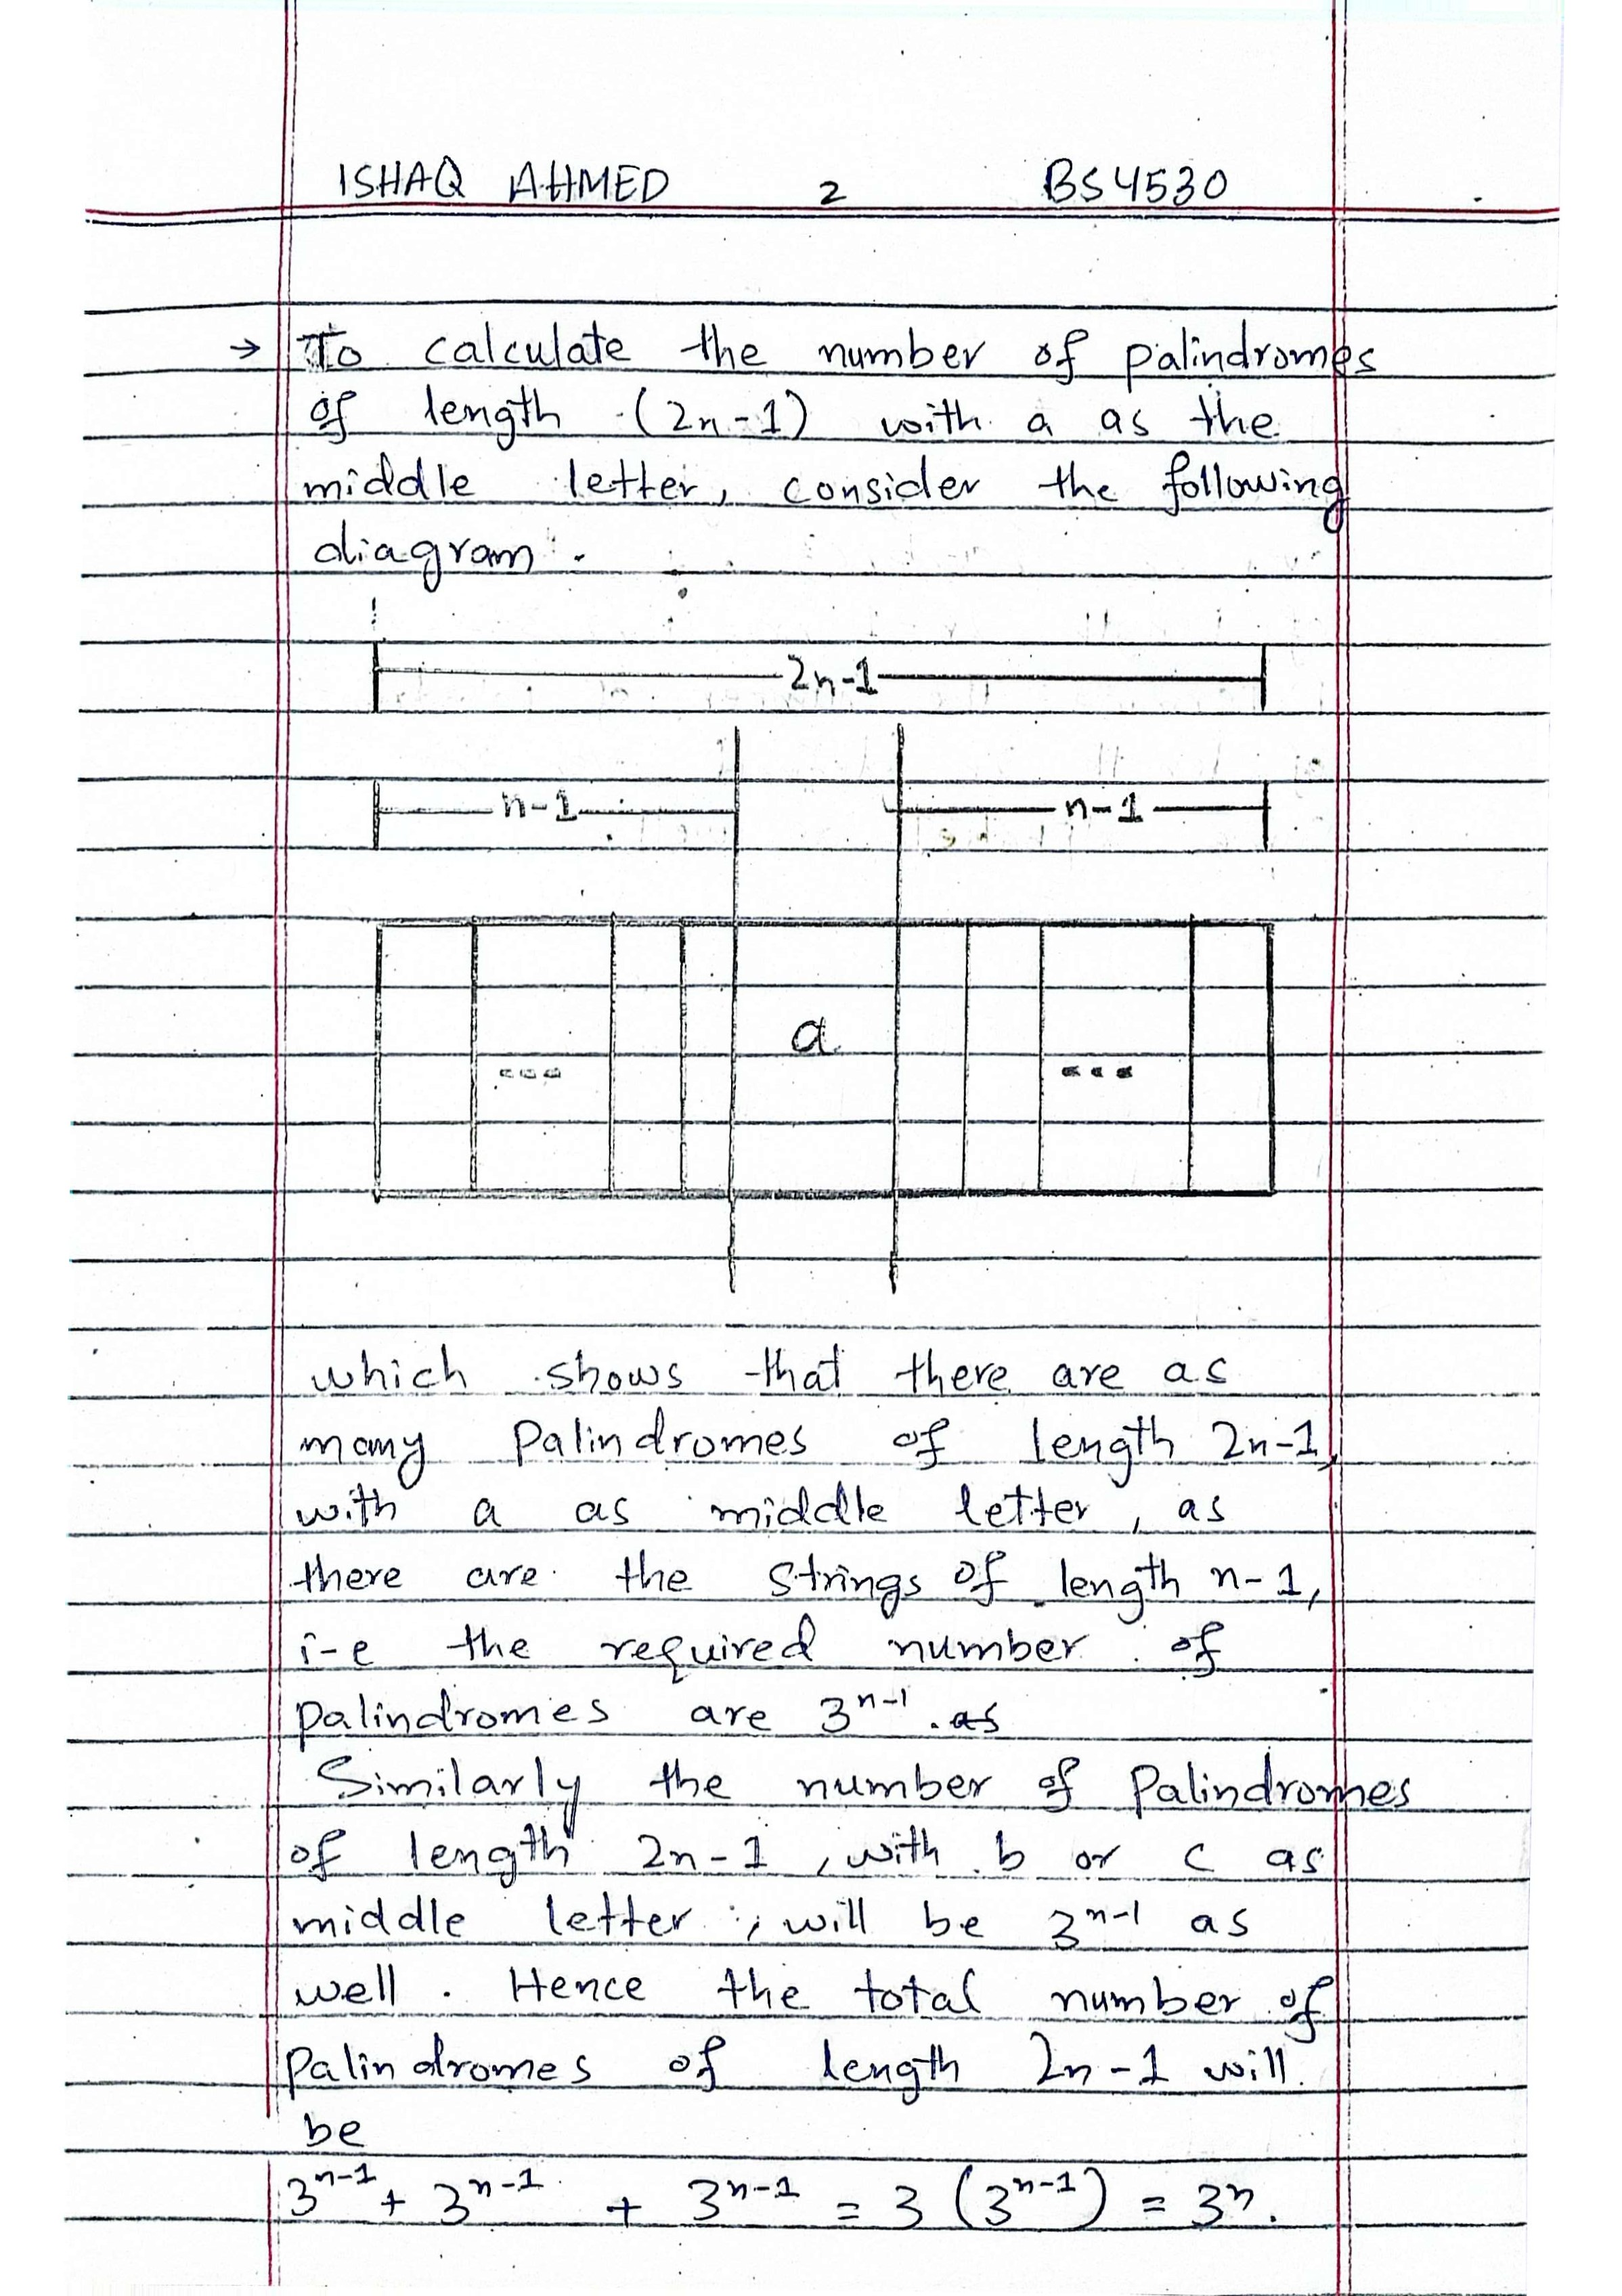 ISHAQ AHMED 2 BS4530
→ To calculate the number of palindromes
of length (2n-1) with a as the
middle letter, consider the following
diagram.
2n-1
n-1 n-1
... a ...
which shows that there are as
many Palindromes of length 2n-1,
with a as middle letter, as
there are the strings of length n-1,
i-e the required number of
palindromes are 3ⁿ⁻¹. as
Similarly the number of Palindromes
of length 2n-1, with b or c as
middle letter, will be 3ⁿ⁻¹ as
well. Hence the total number of
Palindromes of length 2n-1 will
be
3ⁿ⁻¹ + 3ⁿ⁻¹ + 3ⁿ⁻¹ = 3 (3ⁿ⁻¹) = 3ⁿ.